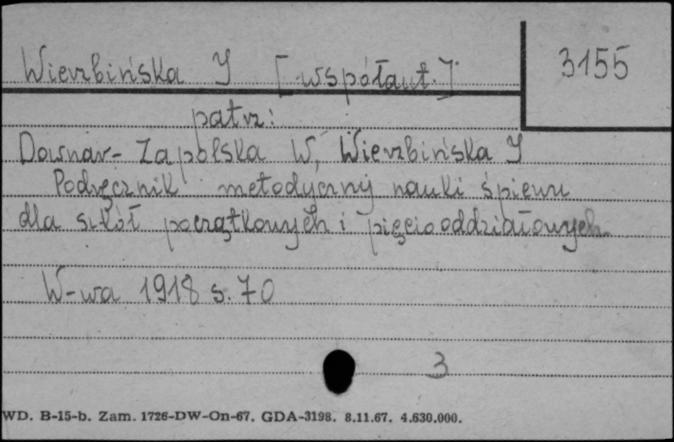 Wierzbińska J [współaut.]
3155
patrz:
Downar-Zapolska W, Wierzbińska J
Podręcznik metodyczny nauki śpiewu
dla szkół początkowych i pięciooddziałowych
W-wa 1918 s. 70
3
WD. B-15-b. Zam. 1726-DW-On-67. GDA-3198. 8.11.67. 4.630.000.